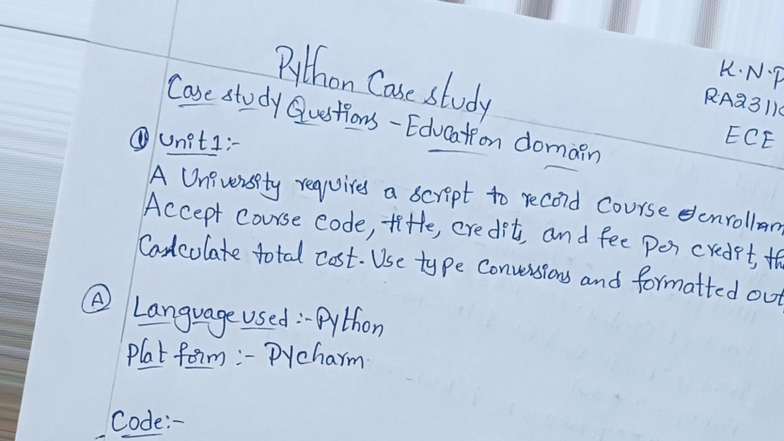 K.N.P
RA2311
ECE
Python Case study
Case study Questions - Education domain
① Unit 1:-
A University requires a script to record course enrollm
Accept course code, title, credits, and fee per credit, th
Calculate total cost. Use type conversions and formatted out
Ⓐ Language used :- Python
Plat form :- PYcharm
Code:-